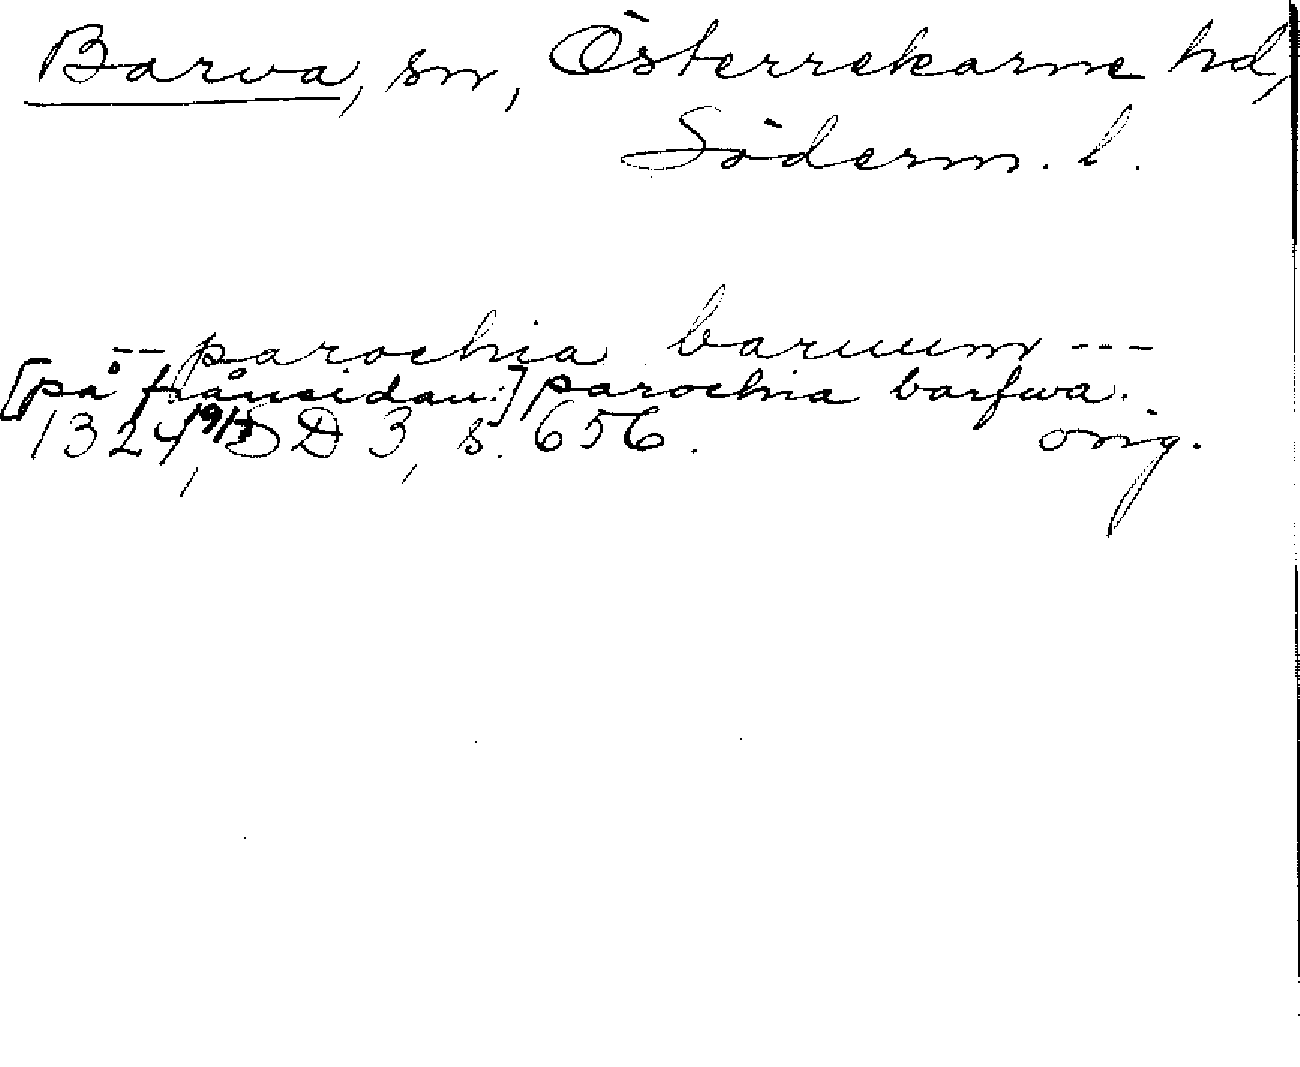 Barva, sn, Österrekarne hd,
Söderm. l.
-- parochia baruum ---
[på frånsidan:] parochia barfwa.
1324, DD 3, s. 656. orig.